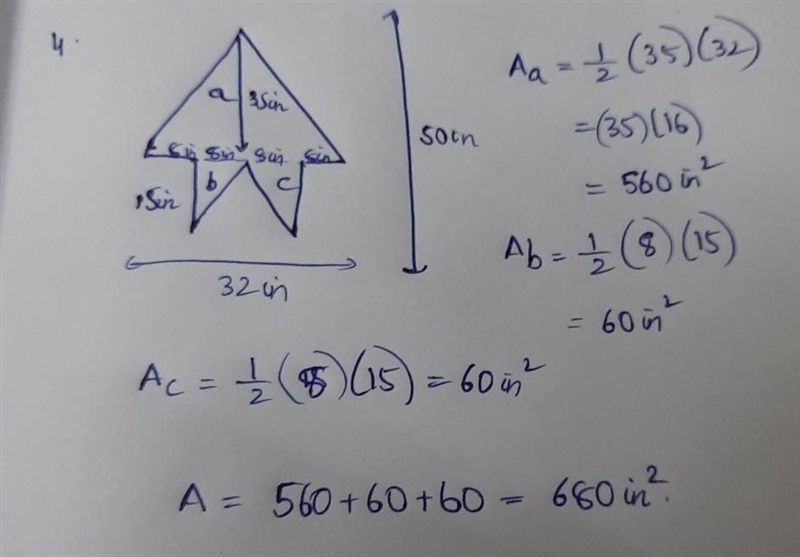 4.
a 35in
8in 8in 8in 8in
b c
15in
50in
32in
Aa = 1/2 (35)(32)
= (35)(16)
= 560 in²
Ab = 1/2 (8)(15)
= 60 in²
Ac = 1/2 (8)(15) = 60 in²
A = 560 + 60 + 60 = 680 in².